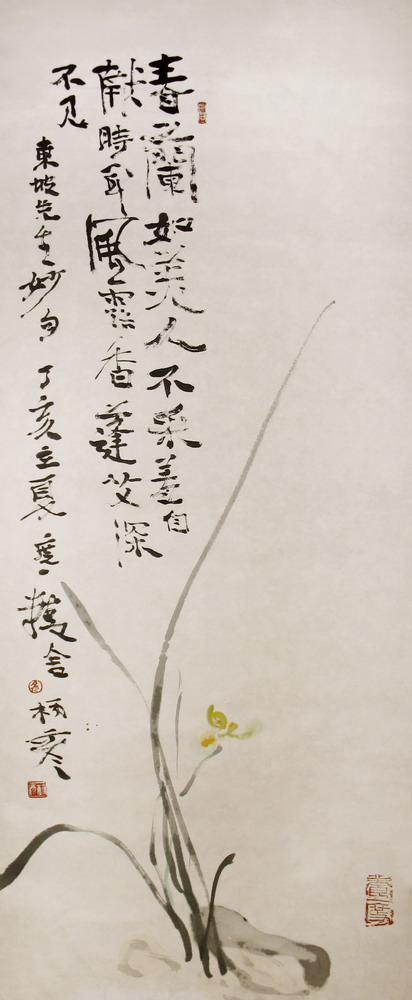 春蘭如美人不采羞自
献時聞風露香蓬艾深
不見
東坡先生妙句丁亥立夏